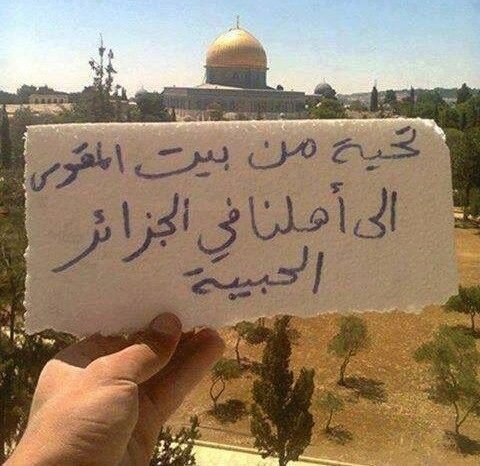 تحية من بيت المقدس
الى أهلنا في الجزائر
الحبيبة